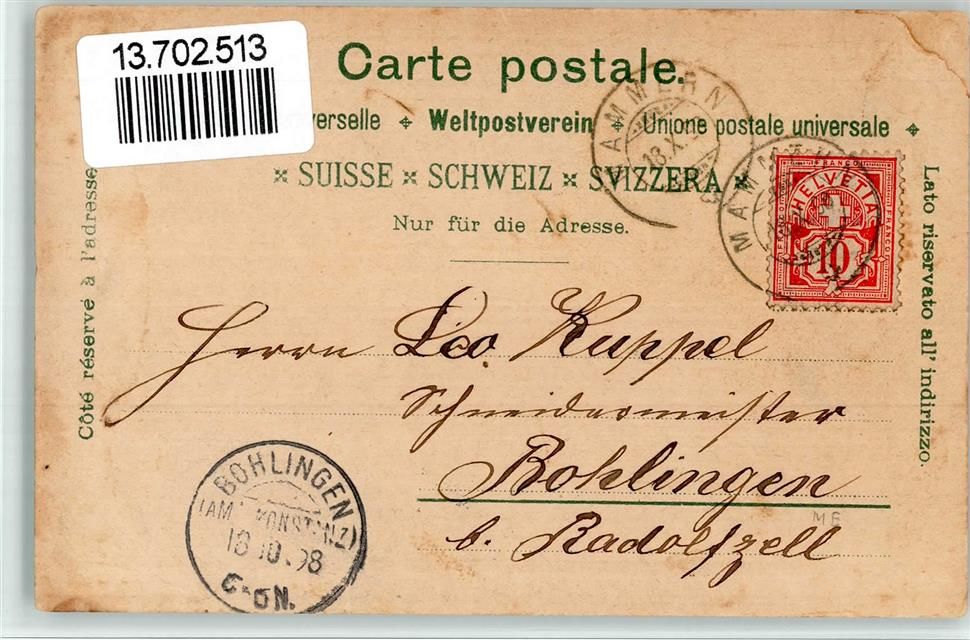 13.702.513
Carte postale.
verselle ⌖ Weltpostverein ⌖ Unione postale universale ⌖
SUISSE × SCHWEIZ × SVIZZERA ×
Nur für die Adresse.
Côté réservé à l'adresse
Lato riservato all' indirizzo.
MAMMERN
18.X.
FRANCO
HELVETIA
FRANCO
FRANCO
10
Herrn Leo Ruppel
Schneidermeister
Bohlingen
b. Radolfzell
M6
BOHLINGEN
(AMT KONSTANZ)
18.10.98
6-7N.